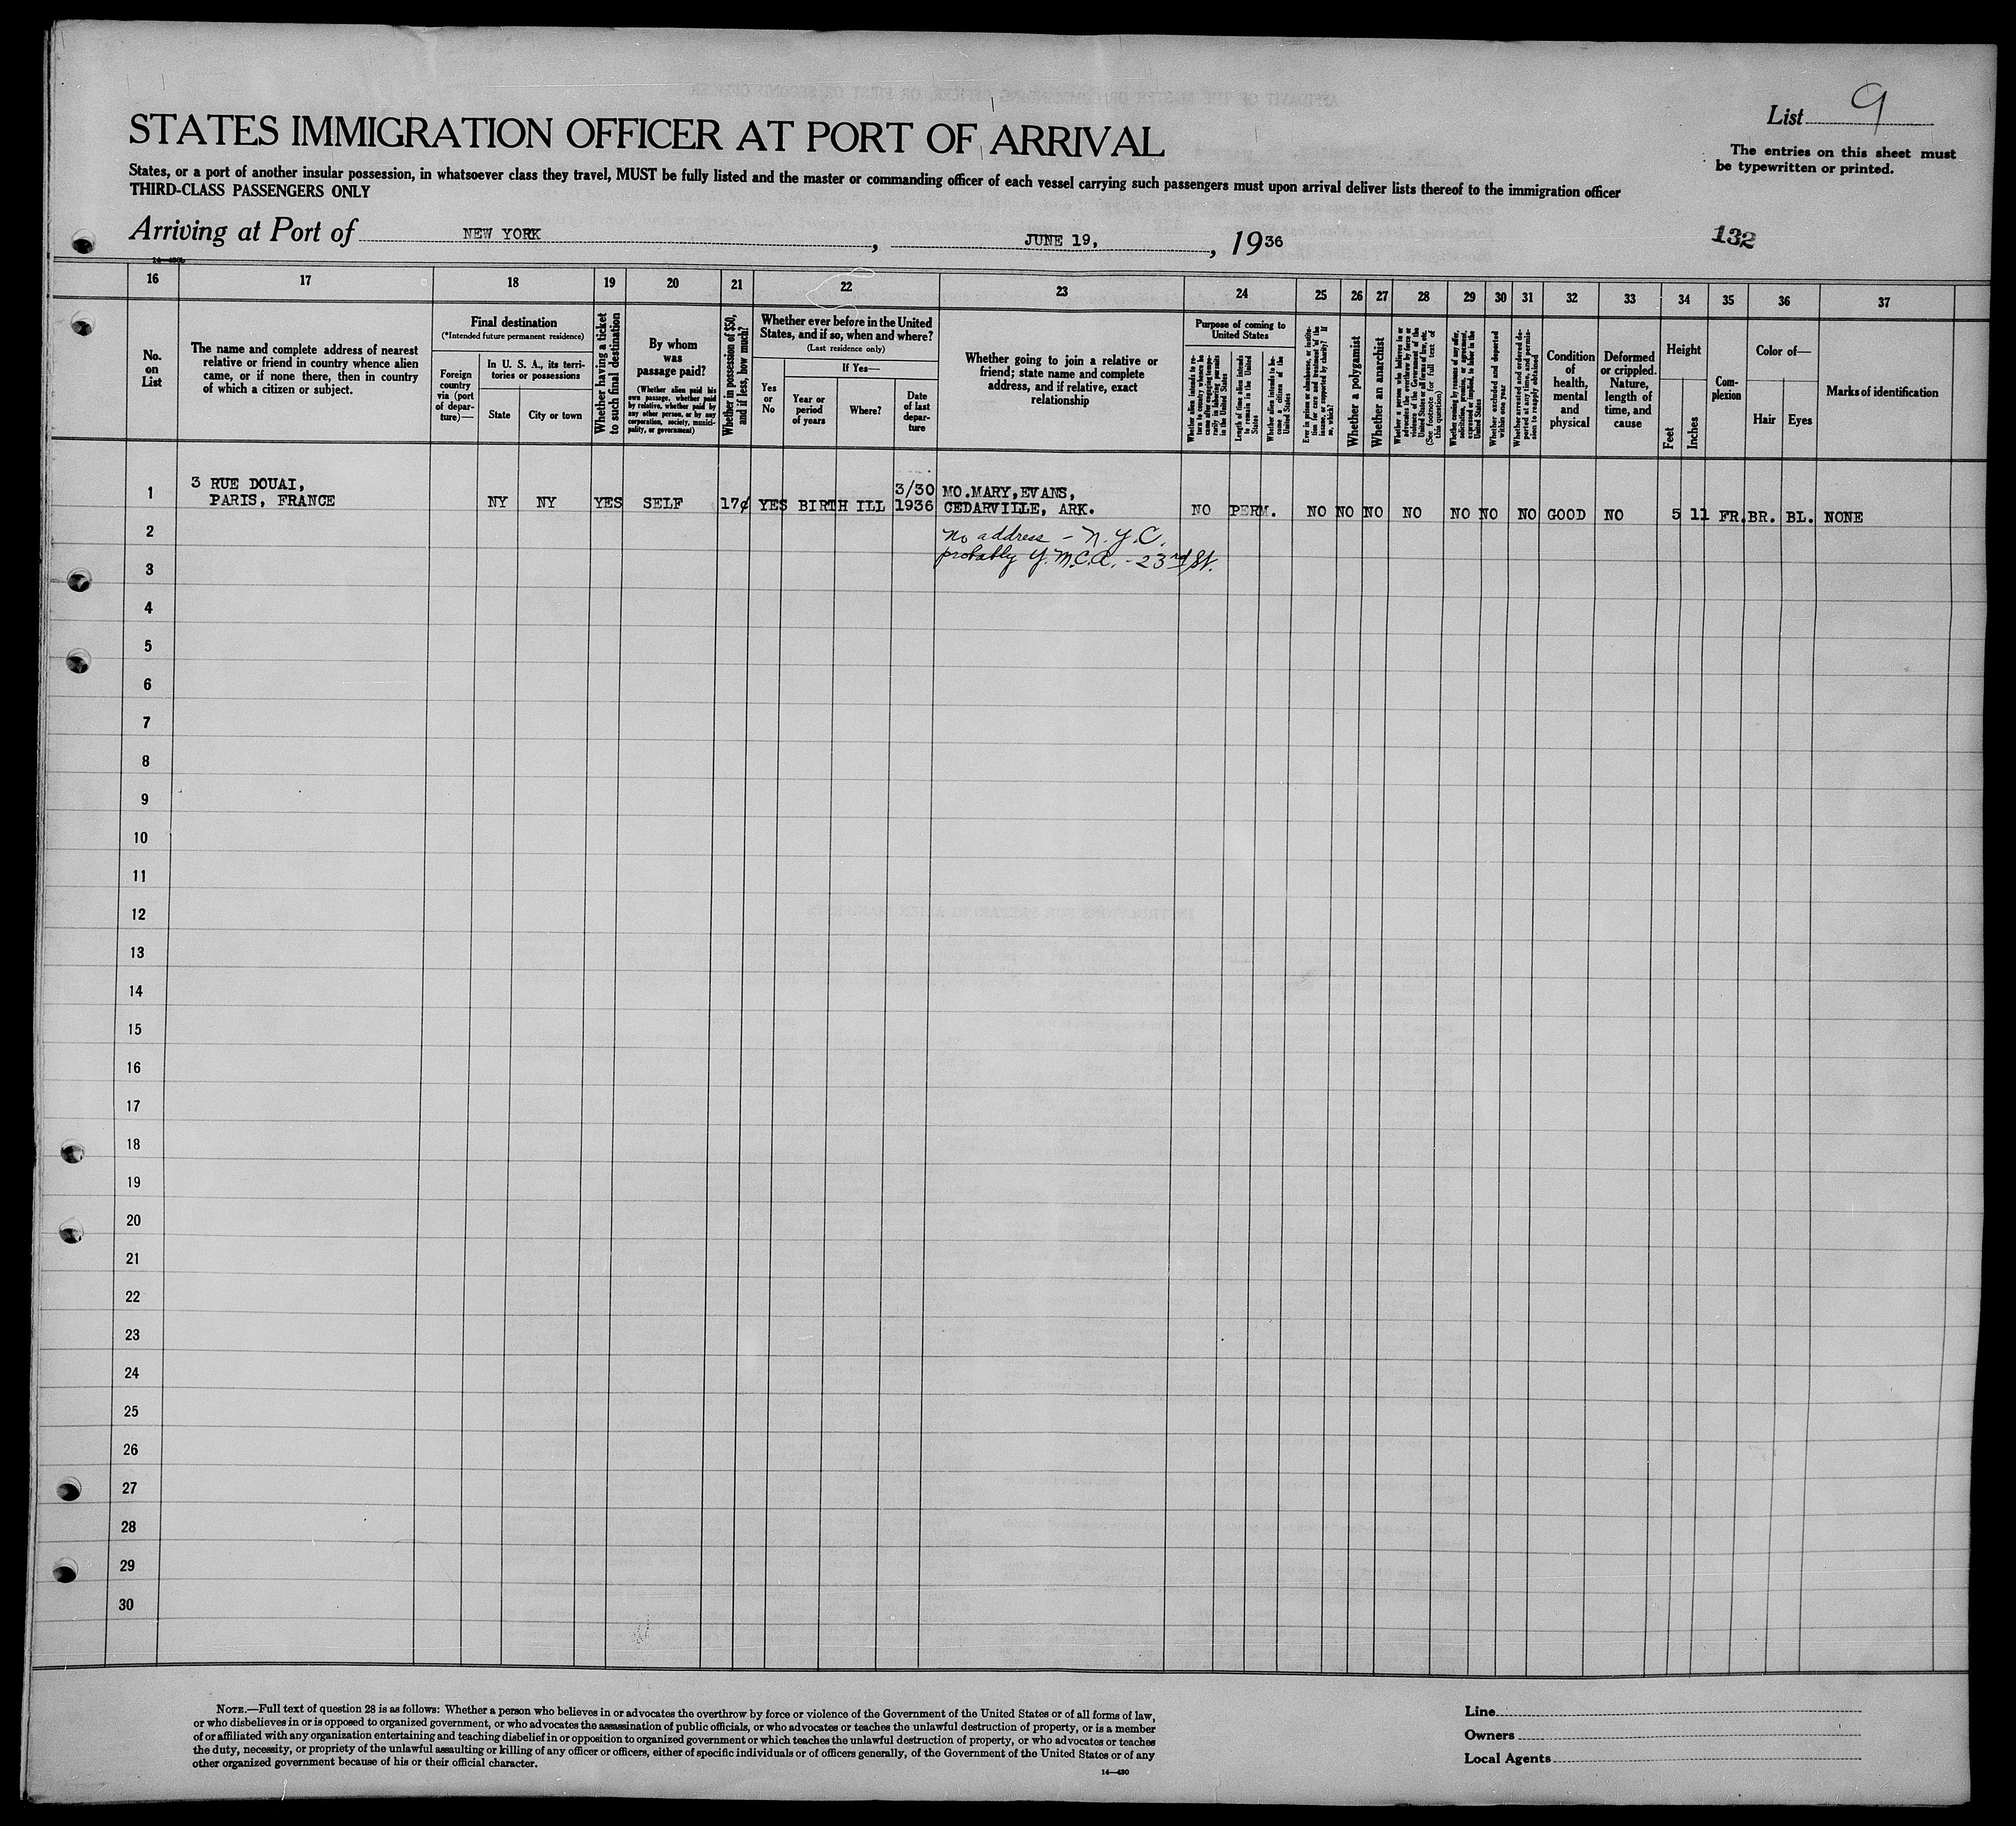 List 9
The entries on this sheet must
be typewritten or printed.
STATES IMMIGRATION OFFICER AT PORT OF ARRIVAL
States, or a port of another insular possession, in whatsoever class they travel, MUST be fully listed and the master or commanding officer of each vessel carrying such passengers must upon arrival deliver lists thereof to the immigration officer
THIRD-CLASS PASSENGERS ONLY
Arriving at Port of NEW YORK, JUNE 19, , 1936
132
16 17 18 19 20 21 22 23 24 25 26 27 28 29 30 31 32 33 34 35 36 37
No.
on
List
The name and complete address of nearest
relative or friend in country whence alien
came, or if none there, then in country
of which a citizen or subject.
Final destination
(*Intended future permanent residence)
Foreign
country
via (port
of depar-
ture)—
In U. S. A., its terri-
tories or possessions
State
City or town
Whether having a ticket
to such final destination
By whom
was
passage paid?
(Whether alien paid his
own passage, whether paid
by relative, whether paid by
any other person, or by any
corporation, society, munici-
pality, or government)
Whether in possession of $50,
and if less, how much?
Whether ever before in the United
States, and if so, when and where?
(Last residence only)
Yes
or
No
If Yes—
Year or
period
of years
Where?
Date
of last
depar-
ture
Whether going to join a relative or
friend; state name and complete
address, and if relative, exact
relationship
Purpose of coming to
United States
Whether alien intends to re-
turn to country whence he
came after engaging tempo-
rarily in laboring pursuits
in the United States
Length of time alien intends
to remain in the United
States
Whether alien intends to be-
come a citizen of the
United States
Ever in prison or almshouse, or institu-
tion for care and treatment of the
insane, or supported by charity? If
so, which?
Whether a polygamist
Whether an anarchist
Whether a person who believes in or
advocates the overthrow by force or
violence of the Government of the
United States or all forms of law, etc.
(See footnote for full text of
this question)
Whether coming by reason of any offer,
solicitation, promise, or agreement,
expressed or implied, to labor in the
United States
Whether excluded and deported
within one year
Whether arrested and ordered de-
ported at any time, and permis-
sion to reapply obtained
Condition
of
health,
mental
and
physical
Deformed
or crippled.
Nature,
length of
time, and
cause
Height
Feet
Inches
Com-
plexion
Color of—
Hair
Eyes
Marks of identification
1
3 RUE DOUAI,
PARIS, FRANCE
NY NY YES SELF 17¢ YES BIRTH ILL
3/30
1936
MO.MARY,EVANS,
CEDARVILLE, ARK.
NO PERM. NO NO NO NO NO NO NO GOOD NO 5 11 FR. BR. BL. NONE
no address - N.Y.C.
probably Y.M.C.A. - 23rd St.
2
3
4
5
6
7
8
9
10
11
12
13
14
15
16
17
18
19
20
21
22
23
24
25
26
27
28
29
30
NOTE.—Full text of question 28 is as follows: Whether a person who believes in or advocates the overthrow by force or violence of the Government of the United States or of all forms of law,
or who disbelieves in or is opposed to organized government, or who advocates the assassination of public officials, or who advocates or teaches the unlawful destruction of property, or is a member
of or affiliated with any organization entertaining and teaching disbelief in or opposition to organized government or which teaches the unlawful destruction of property, or who advocates or teaches
the duty, necessity, or propriety of the unlawful assaulting or killing of any officer or officers, either of specific individuals or of officers generally, of the Government of the United States or of any
other organized government because of his or their official character.
14—430
Line
Owners
Local Agents